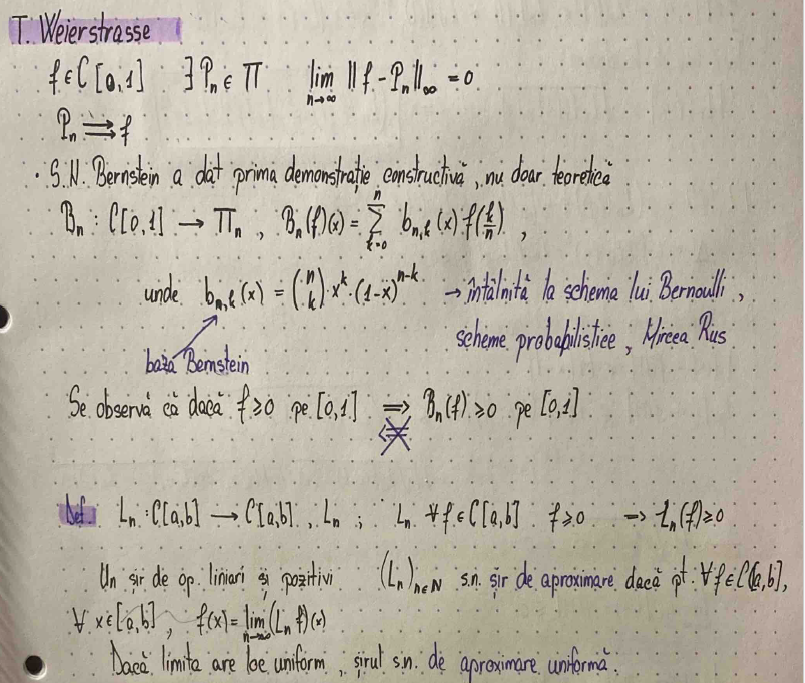 T. Weierstrasse
f ∈ C[0,1] ∃ Pₙ ∈ Π lim_{n→∞} ‖f - Pₙ‖_∞ = 0
Pₙ ⇉ f
• S.N. Bernstein a dat prima demonstrație constructivă, nu doar teoretică
Bₙ : C[0,1] → Πₙ , Bₙ(f)(x) = ∑_{k=0}^{n} b_{n,k}(x) f(k/n) ,
unde b_{n,k}(x) = (n k) · x^k · (1-x)^{n-k} → întâlnită la schema lui Bernoulli,
scheme probabilistice, Mircea Rus
baza Bernstein
Se observă că dacă f ≥ 0 pe [0,1] ⇒ Bₙ(f) ≥ 0 pe [0,1]
⇍
Def. Lₙ : C[a,b] → C[a,b] , Lₙ ; Lₙ ∀ f ∈ C[a,b] f ≥ 0 ⇒ Lₙ(f) ≥ 0
Un șir de op. liniari și pozitivi (Lₙ)_{n∈N} s.n. șir de aproximare dacă pt. ∀ f ∈ C[a,b],
∀ x ∈ [a,b] , f(x) = lim_{n→∞} (Lₙ f)(x)
Dacă limita are loc uniform, șirul s.n. de aproximare uniformă.